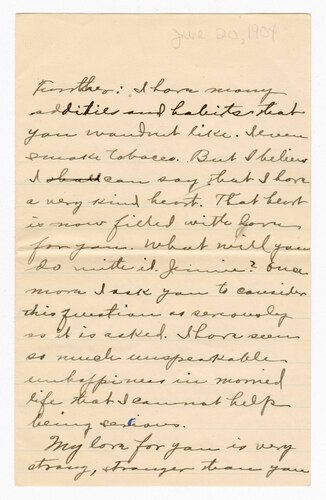 June 20, 1904
Further: I have many
oddities and habits that
you wouldn't like. I even
smoke tobacco. But I believe
I shall can say that I have
a very kind heart. That heart
is now filled with love
for you. What will you
do with it, Jennie? Once
more I ask you to consider
this question as seriously
as it is asked. I have seen
so much unspeakable
unhappiness in married
life that I cannot help
being serious.
My love for you is very
strong, stronger than you